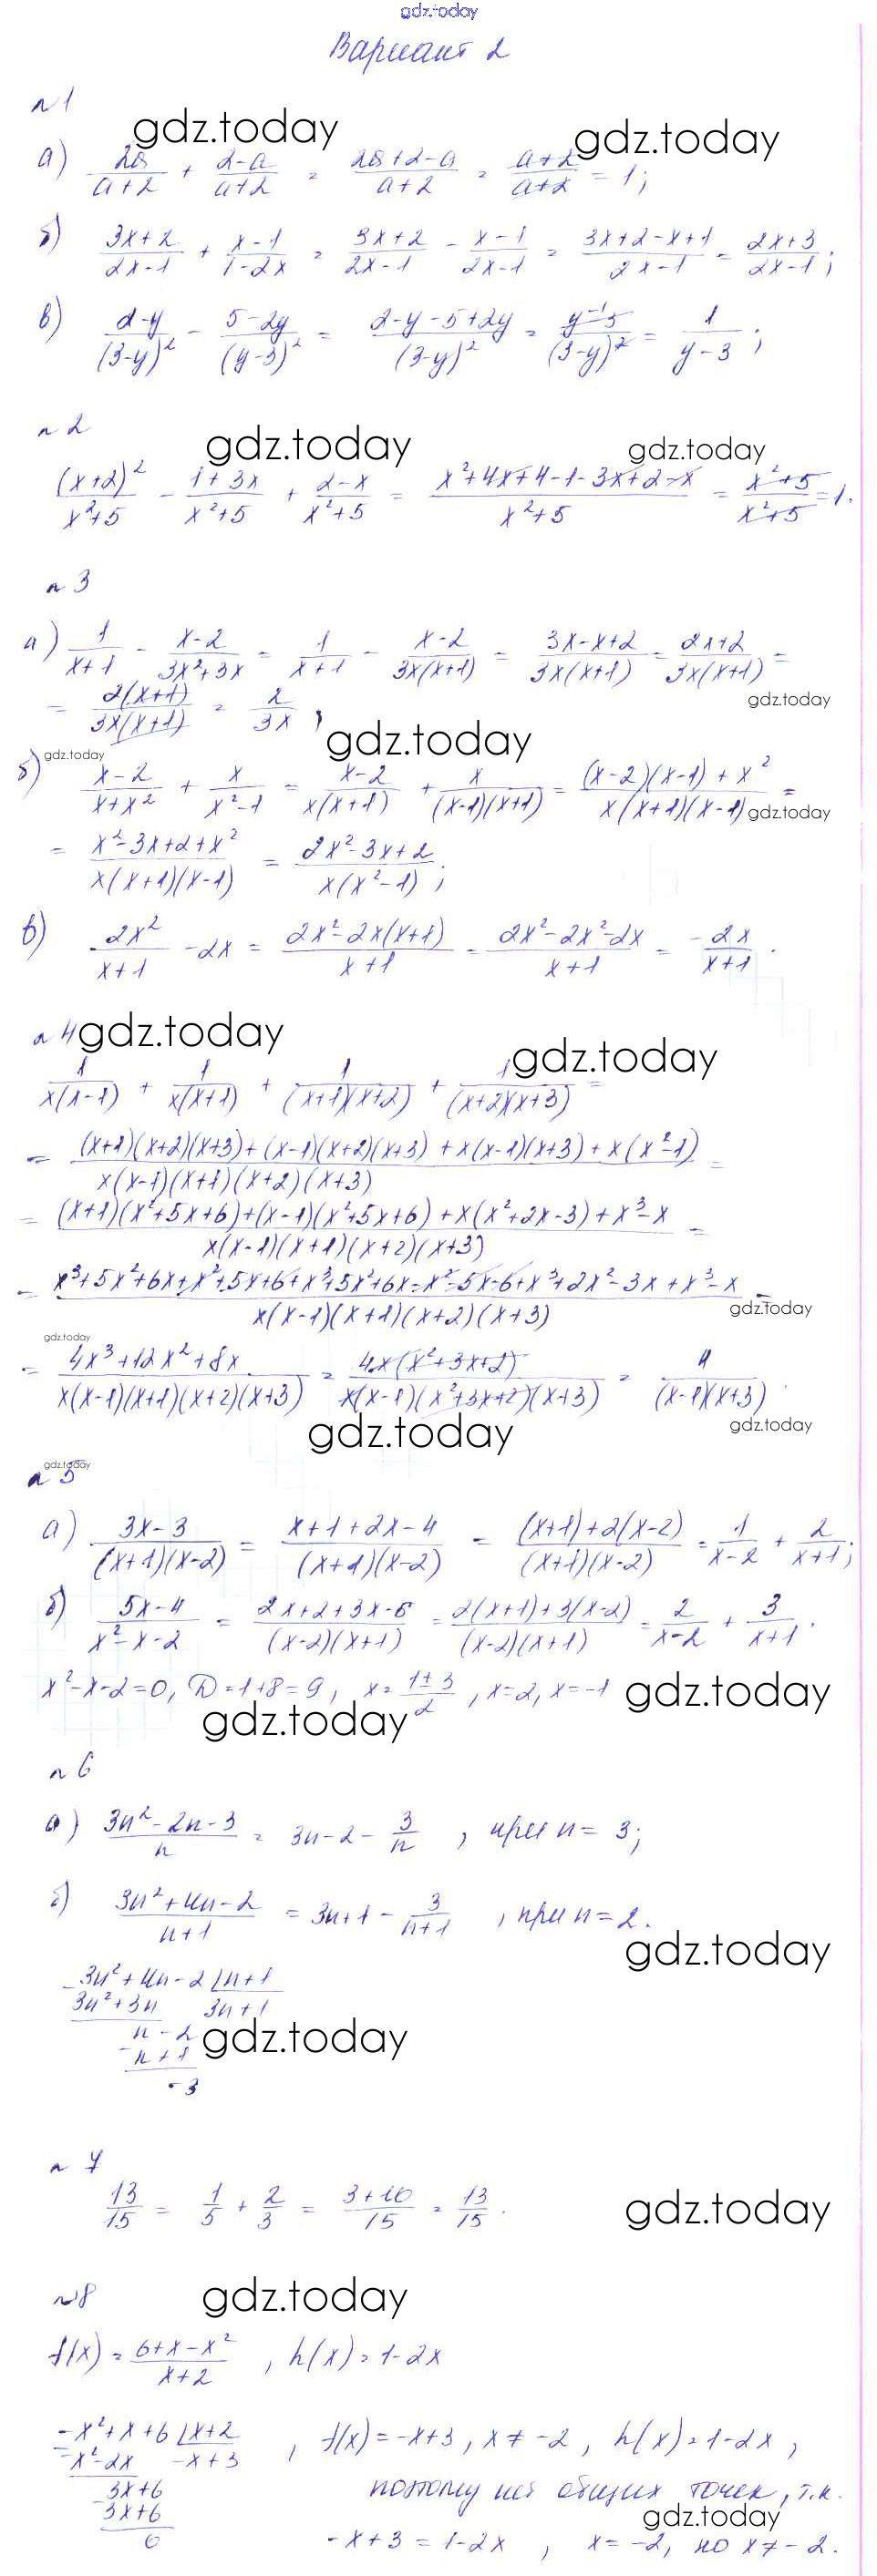 gdz.today
Вариант 2
n 1
gdz.today gdz.today
а) 2a/(a+2) + (2-a)/(a+2) = (2a+2-a)/(a+2) = (a+2)/(a+2) = 1;
б) (3x+2)/(2x-1) + (x-1)/(1-2x) = (3x+2)/(2x-1) - (x-1)/(2x-1) = (3x+2-x+1)/(2x-1) = (2x+3)/(2x-1);
в) (2-y)/(3-y)² - (5-2y)/(y-3)² = (2-y-5+2y)/(3-y)² = (y-3)/(3-y)² = 1/(y-3);
n 2
gdz.today gdz.today
(x+2)²/(x²+5) - (1+3x)/(x²+5) + (2-x)/(x²+5) = (x²+4x+4-1-3x+2-x)/(x²+5) = (x²+5)/(x²+5) = 1.
n 3
а) 1/(x+1) - (x-2)/(3x²+3x) = 1/(x+1) - (x-2)/(3x(x+1)) = (3x-x+2)/(3x(x+1)) = (2x+2)/(3x(x+1)) =
gdz.today
= 2(x+1)/(3x(x+1)) = 2/(3x),
gdz.today gdz.today
б) (x-2)/(x+x²) + x/(x²-1) = (x-2)/(x(x+1)) + x/((x-1)(x+1)) = ((x-2)(x-1)+x²)/(x(x+1)(x-1)) =
gdz.today
= (x²-3x+2+x²)/(x(x+1)(x-1)) = (2x²-3x+2)/(x(x²-1));
в) 2x²/(x+1) - 2x = (2x²-2x(x+1))/(x+1) = (2x²-2x²-2x)/(x+1) = -2x/(x+1).
n 4 gdz.today gdz.today
1/(x(x-1)) + 1/(x(x+1)) + 1/((x+1)(x+2)) + 1/((x+2)(x+3)) =
= ((x+1)(x+2)(x+3)+(x-1)(x+2)(x+3)+x(x-1)(x+3)+x(x²-1))/(x(x-1)(x+1)(x+2)(x+3)) =
= ((x+1)(x²+5x+6)+(x-1)(x²+5x+6)+x(x²+2x-3)+x³-x)/(x(x-1)(x+1)(x+2)(x+3)) =
= (x³+5x²+6x+x²+5x+6+x³+5x²+6x-x²-5x-6+x³+2x²-3x+x³-x)/(x(x-1)(x+1)(x+2)(x+3)) =
gdz.today
gdz.today
= (4x³+12x²+8x)/(x(x-1)(x+1)(x+2)(x+3)) = 4x(x²+3x+2)/(x(x-1)(x²+3x+2)(x+3)) = 4/((x-1)(x+3)).
gdz.today gdz.today
gdz.today
n 5
а) (3x-3)/((x+1)(x-2)) = (x+1+2x-4)/((x+1)(x-2)) = ((x+1)+2(x-2))/((x+1)(x-2)) = 1/(x-2) + 2/(x+1);
б) (5x-4)/(x²-x-2) = (2x+2+3x-6)/((x-2)(x+1)) = (2(x+1)+3(x-2))/((x-2)(x+1)) = 2/(x-2) + 3/(x+1).
x²-x-2=0, D=1+8=9, x=(1±3)/2, x=2, x=-1 gdz.today
gdz.today
n 6
а) (3n²-2n-3)/n = 3n-2-3/n, при n = 3;
б) (3n²+4n-2)/(n+1) = 3n+1-3/(n+1), при n=2.
gdz.today
-3n²+4n-2 | n+1
3n²+3n 3n+1
n-2 gdz.today
-n+1
-3
n 7
13/15 = 1/5 + 2/3 = (3+10)/15 = 13/15. gdz.today
n 8 gdz.today
f(x) = (6+x-x²)/(x+2), h(x) = 1-2x
-x²+x+6 | x+2, f(x) = -x+3, x≠-2, h(x) = 1-2x,
-x²-2x -x+3
3x+6 поэтому нет общих точек, т.к.
-3x+6 gdz.today
0 -x+3 = 1-2x, x=-2, но x≠-2.